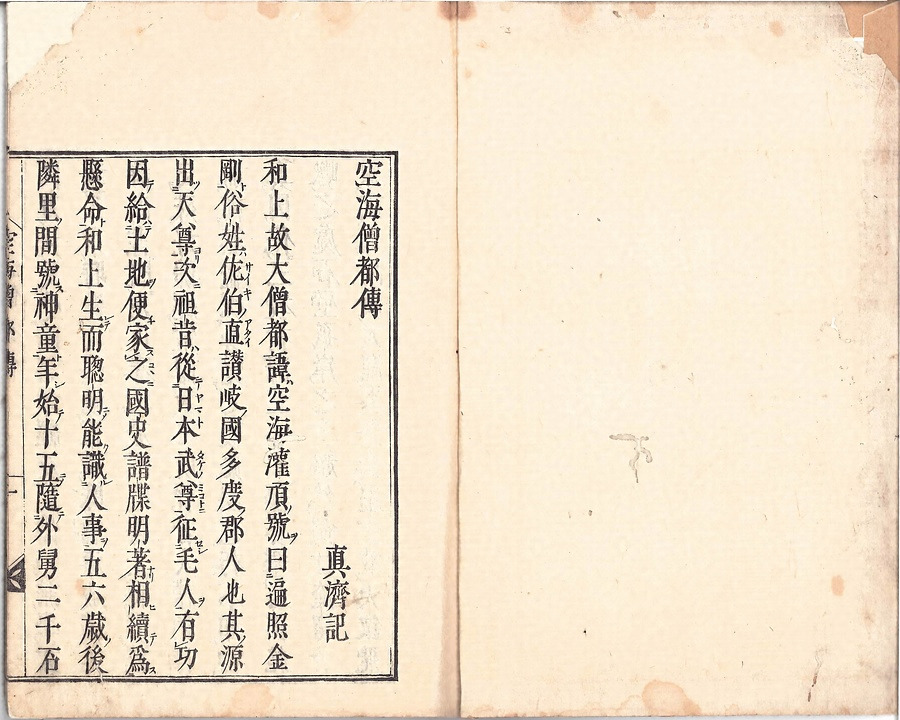 空海僧都傳
真濟記
和上故大僧都諱空海灌頂號曰遍照金
剛俗姓佐伯直讃岐國多度郡人也其源
出天尊次祖昔從日本武尊征毛人有功
因給土地便家之國史譜牒明著相續爲
縣令和上生而聰明能識人事五六歳後
隣里間號神童年始十五隨外舅二千石
空海僧都傳
一